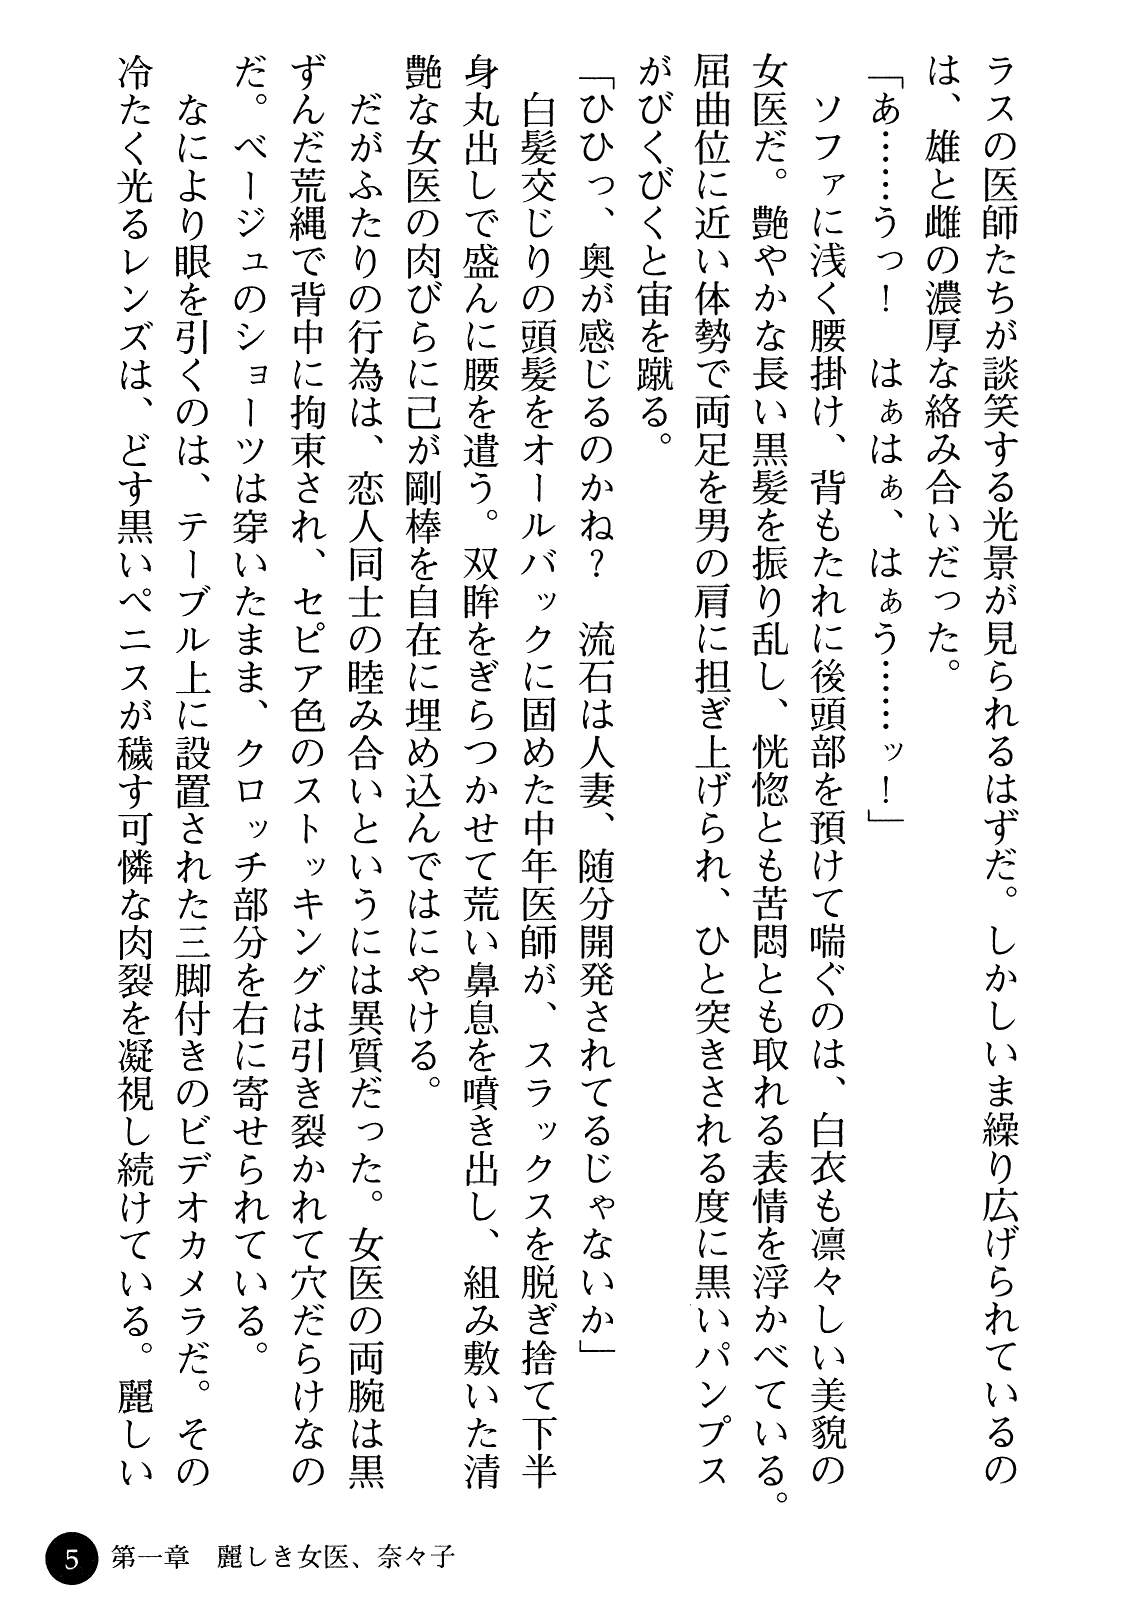 ラスの医師たちが談笑する光景が見られるはずだ。しかしいま繰り広げられているの
は、雄と雌の濃厚な絡み合いだった。
「あ……うっ！　はぁはぁ、はぁう……ッ！」
　ソファに浅く腰掛け、背もたれに後頭部を預けて喘ぐのは、白衣も凛々しい美貌の
女医だ。艶やかな長い黒髪を振り乱し、恍惚とも苦悶とも取れる表情を浮かべている。
屈曲位に近い体勢で両足を男の肩に担ぎ上げられ、ひと突きされる度に黒いパンプス
がびくびくと宙を蹴る。
「ひひっ、奥が感じるのかね？　流石は人妻、随分開発されてるじゃないか」
　白髪交じりの頭髪をオールバックに固めた中年医師が、スラックスを脱ぎ捨て下半
身丸出しで盛んに腰を遣う。双眸をぎらつかせて荒い鼻息を噴き出し、組み敷いた清
艶な女医の肉びらに己が剛棒を自在に埋め込んではにやける。
　だがふたりの行為は、恋人同士の睦み合いというには異質だった。女医の両腕は黒
ずんだ荒縄で背中に拘束され、セピア色のストッキングは引き裂かれて穴だらけなの
だ。ベージュのショーツは穿いたまま、クロッチ部分を右に寄せられている。
　なにより眼を引くのは、テーブル上に設置された三脚付きのビデオカメラだ。その
冷たく光るレンズは、どす黒いペニスが穢す可憐な肉裂を凝視し続けている。麗しい
5 第一章　麗しき女医、奈々子